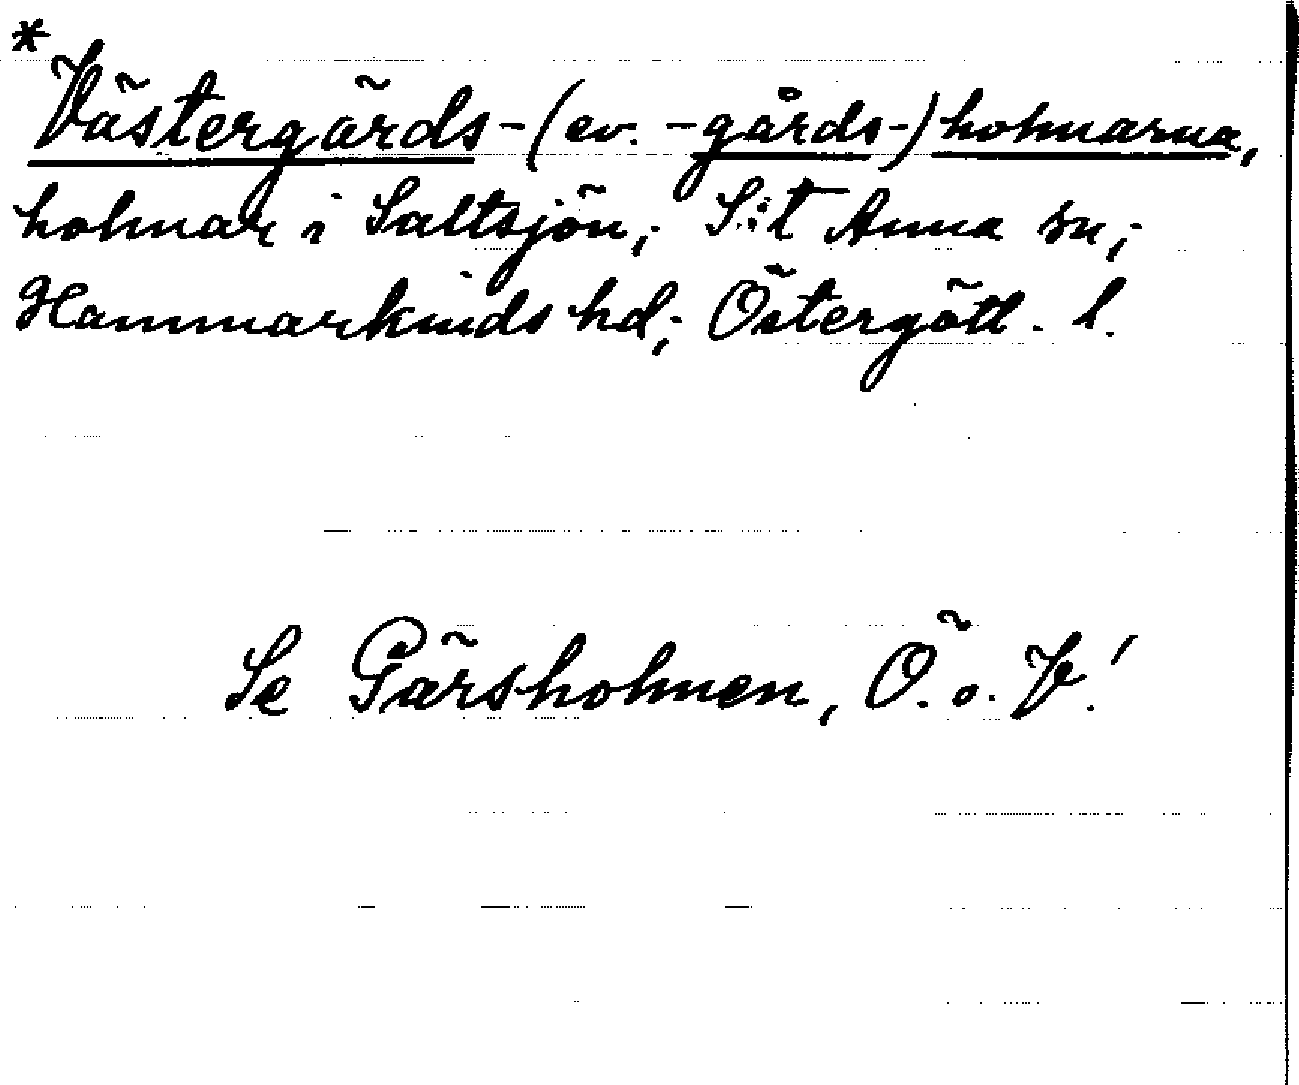 *Västergärds-(ev. -gårds-)holmarna,
holmar i Saltsjön; S:t Anna sn;
Hammarkinds hd; Östergötl. l.
Se Gärsholmen, Ö. o. V.!